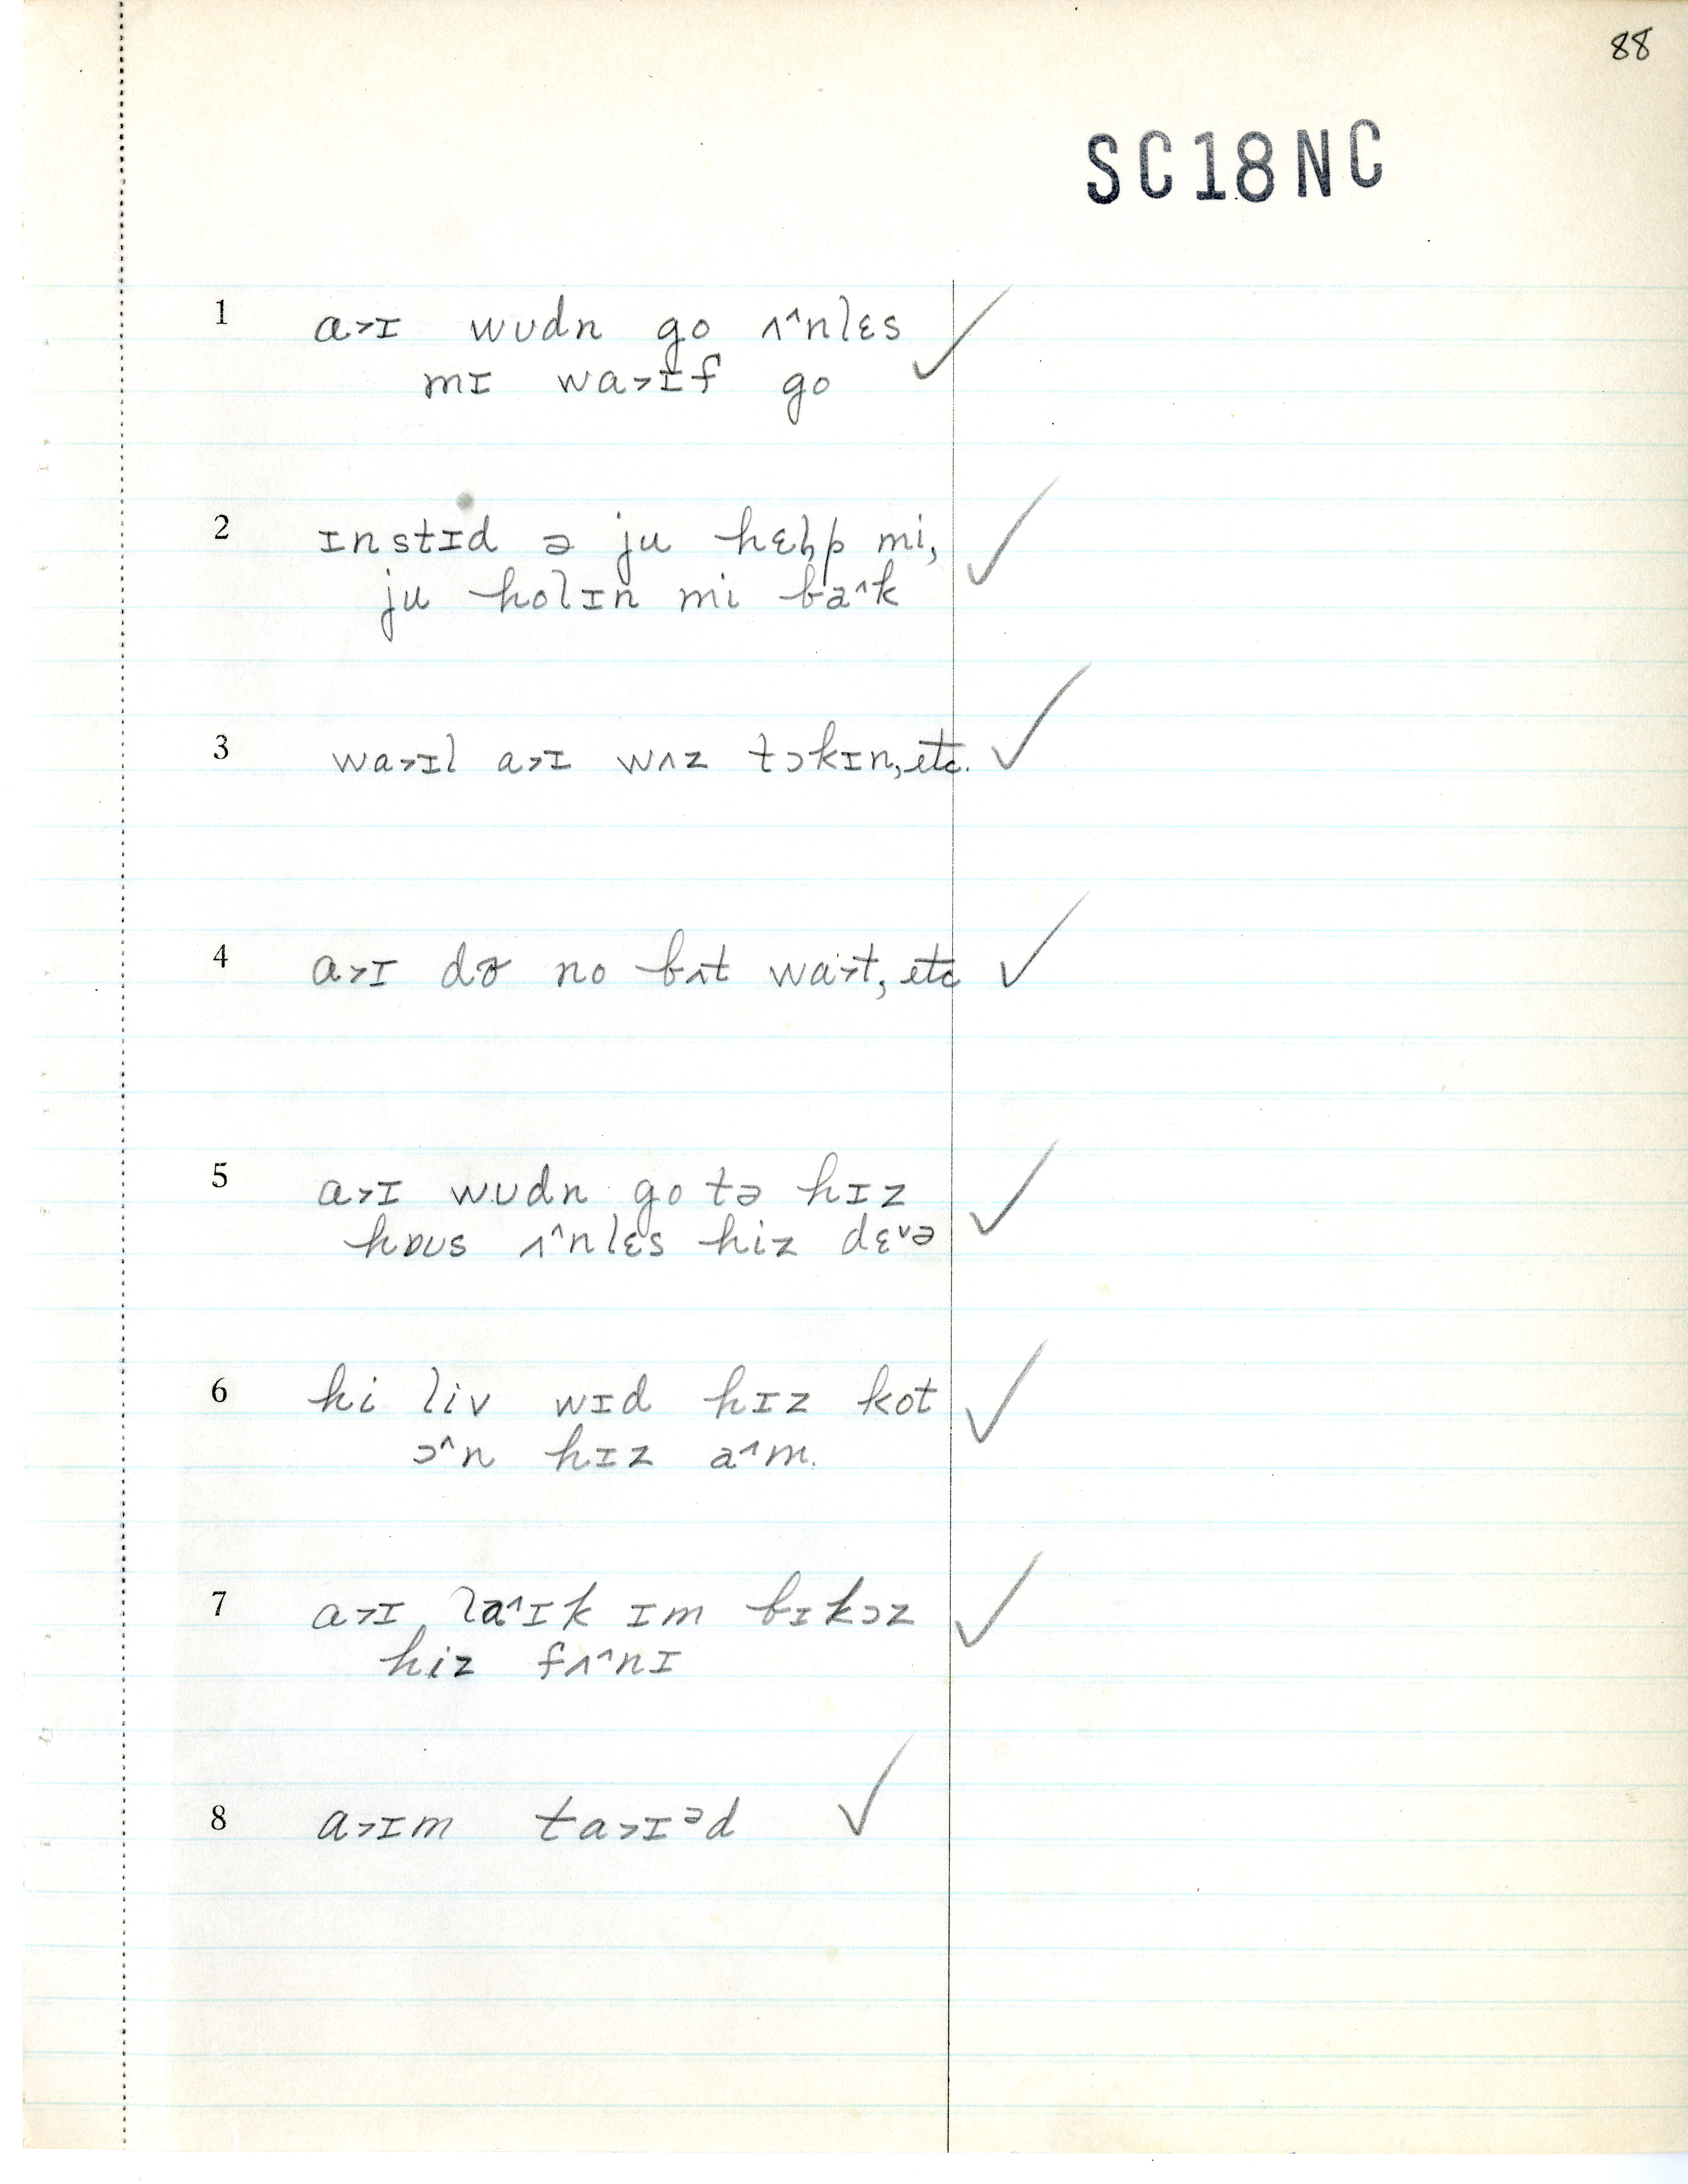 88
SC18NC
1 a˃ɪ wʊdn go ʌ^nlɛs ✓
mɪ wa˃ɪf go
2 ɪnstɪd ə ju hɛlp mi, ✓
ju holɪn mi ba^k
3 wa˃ɪl a˃ɪ wʌz tɔkɪn, etc. ✓
4 a˃ɪ no bʌt wa˃t, etc ✓
5 a˃ɪ wʊdn go tə hɪz ✓
hɒʊs ʌ^nlɛs hiz dɛ˅ə
6 hi liv wɪd hɪz kot ✓
ɔ^n hɪz a^m.
7 a˃ɪ la^ɪk ɪm bɪkɔz ✓
hiz fʌ^nɪ
8 a˃ɪm ta˃ɪᵊd ✓